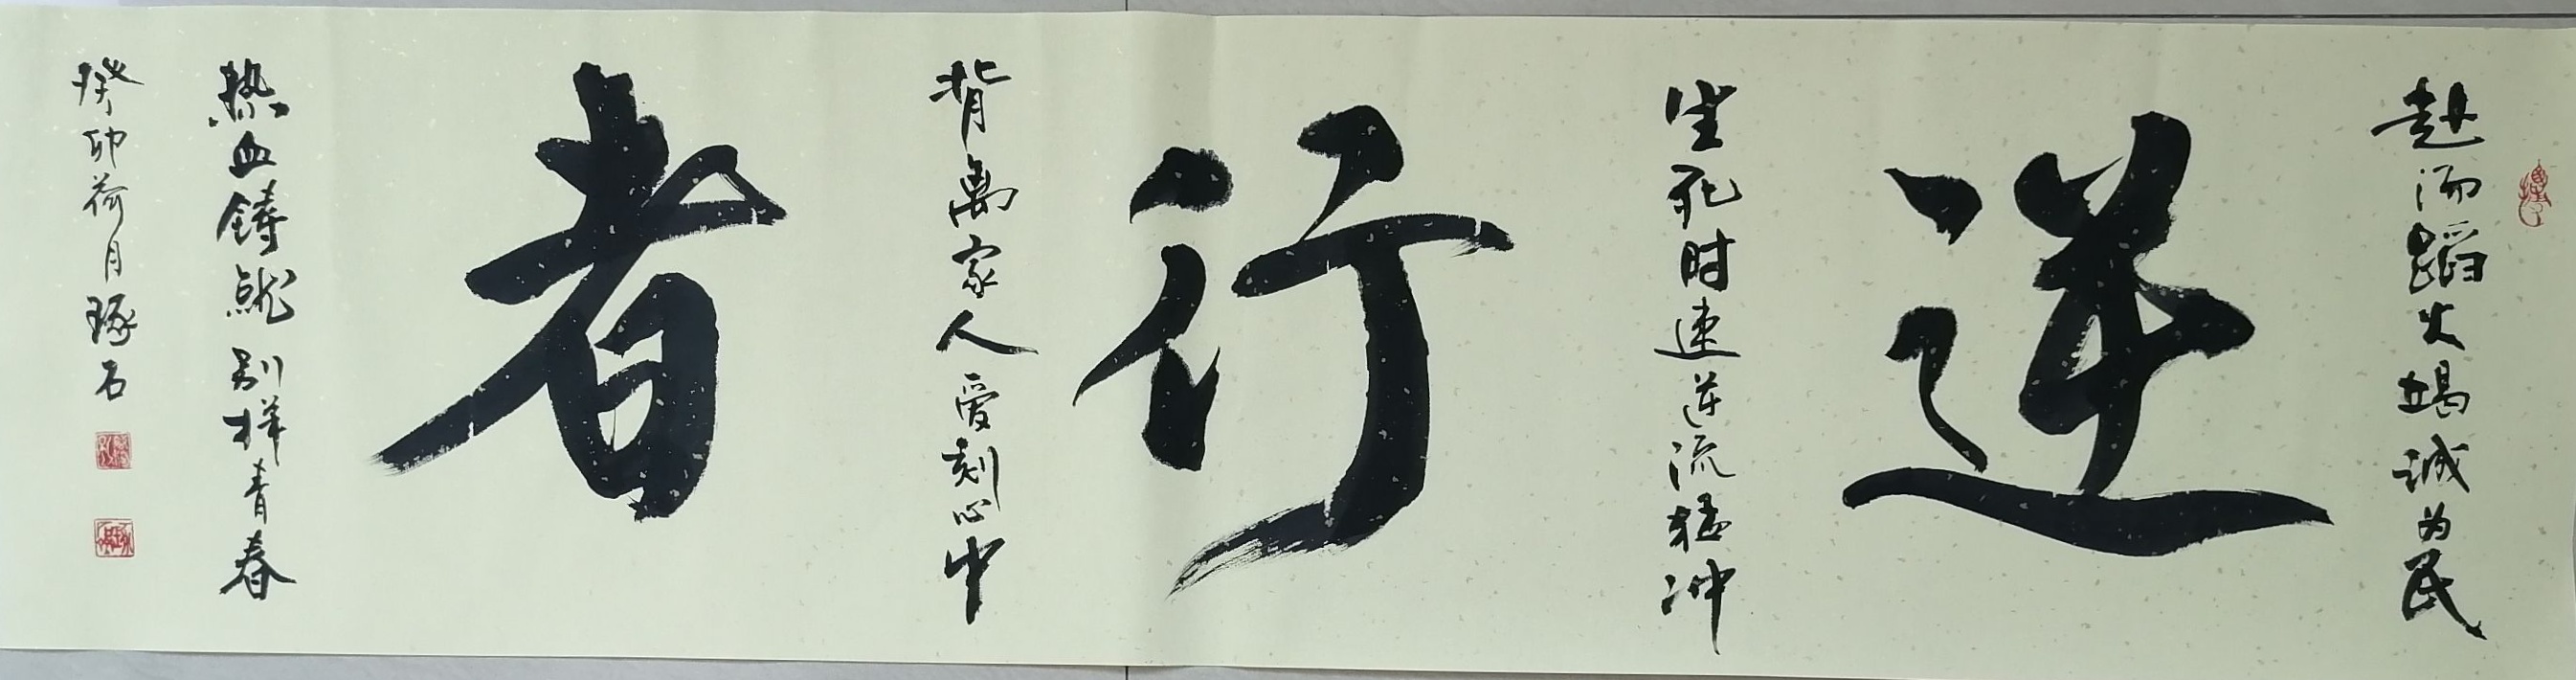 赴汤蹈火竭诚为民
逆
生死时速逆流猛冲
行
背离家人爱刻心中
者
热血铸就别样青春
癸卯荷月琢石